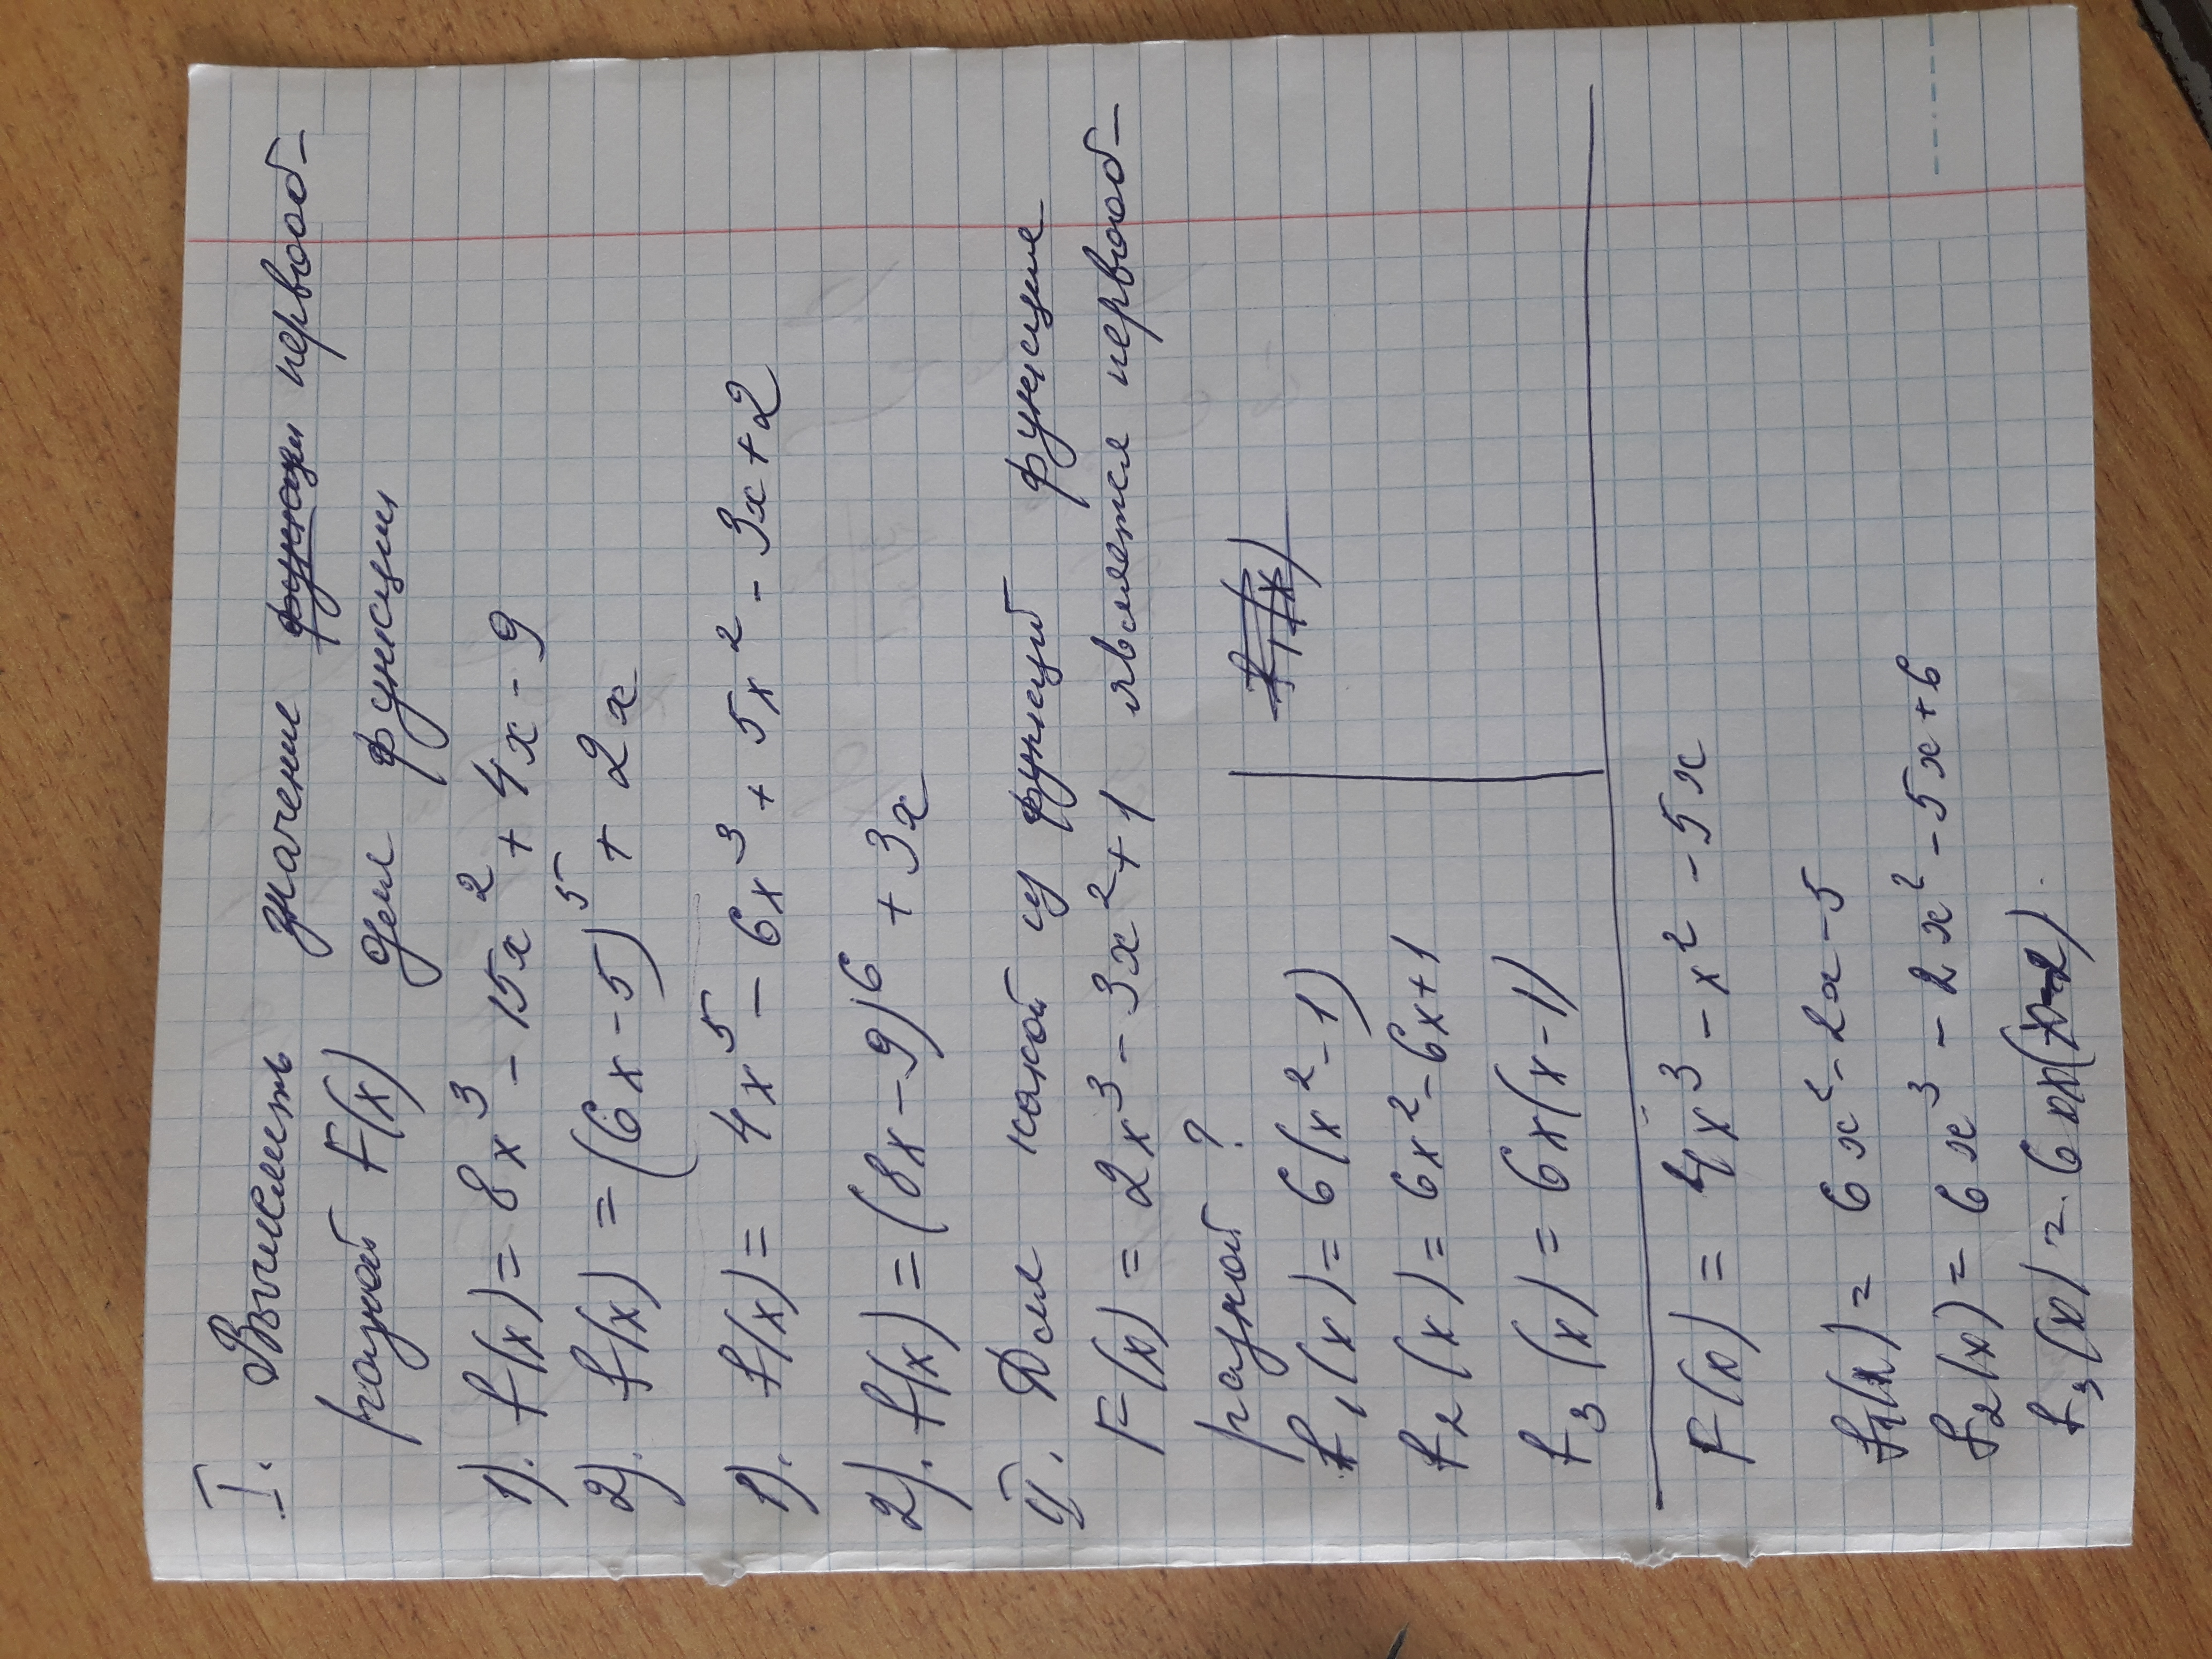 I. Вычислить значение первооб-
разной F(x) для функции
1). f(x) = 8x³ - 15x² + 4x - 9
2). f(x) = (6x - 5)⁵ + 2x
1). f(x) = 4x⁵ - 6x³ + 5x² - 3x + 2
2). f(x) = (8x - 9)⁶ + 3x
II. Для какой из функций функция
F(x) = 2x³ - 3x² + 1 является первооб-
разной ?
f₁(x) = 6(x² - 1)
f₂(x) = 6x² - 6x + 1
f₃(x) = 6x(x - 1)
F(x) = 4x³ - x² - 5x
f₁(x) = 6x² - 2x - 5
f₂(x) = 6x³ - 2x² - 5x + 6
f₃(x) =